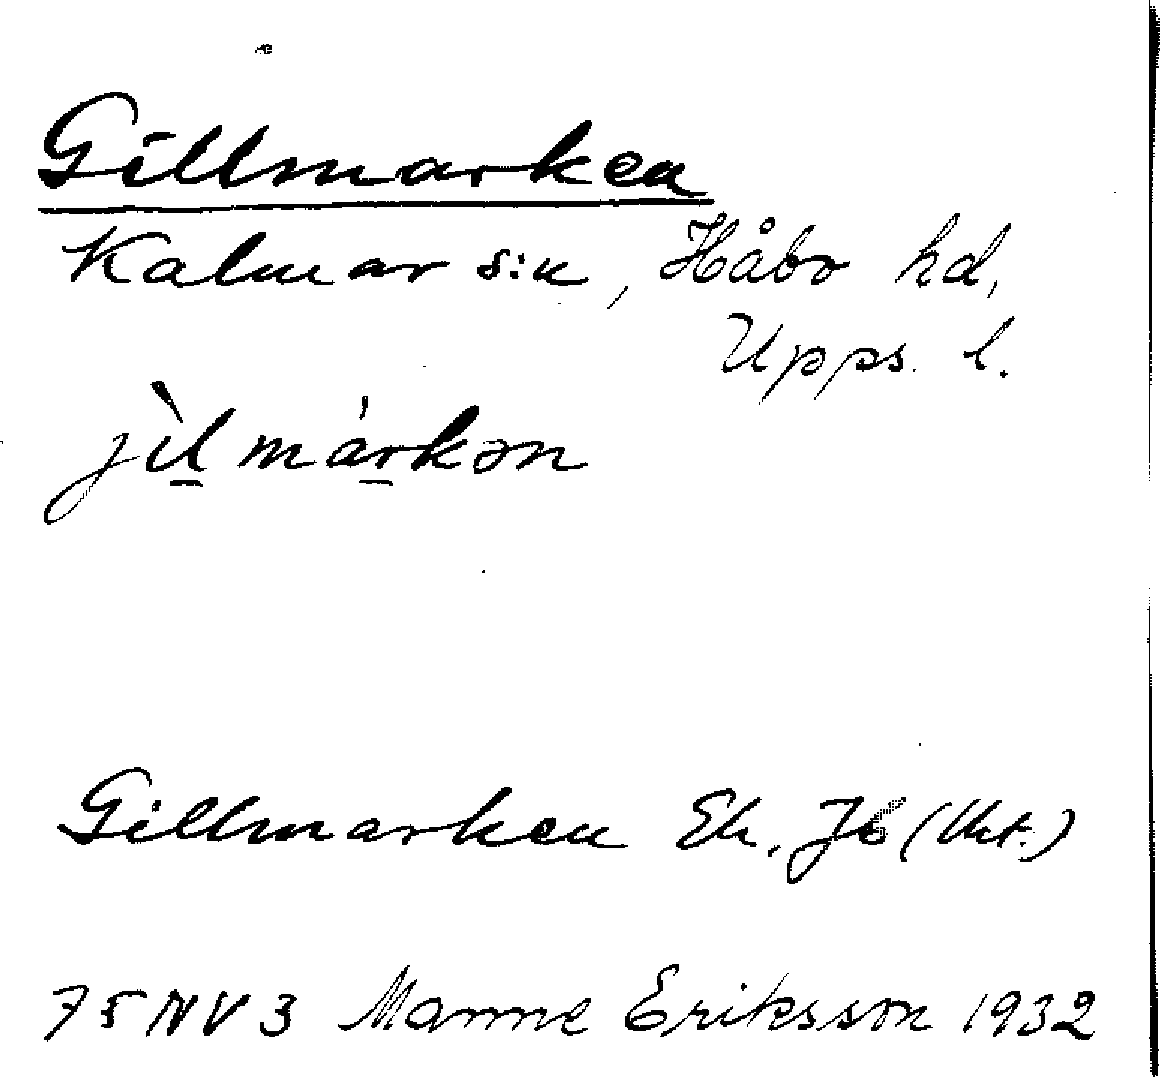 Gillmarken
Kalmar s:n, Håbo hd,
Upps. l.
jìl márkən
Gillmarken Ek. Jb (Ukt.)
75 NV 3 Manne Eriksson 1932